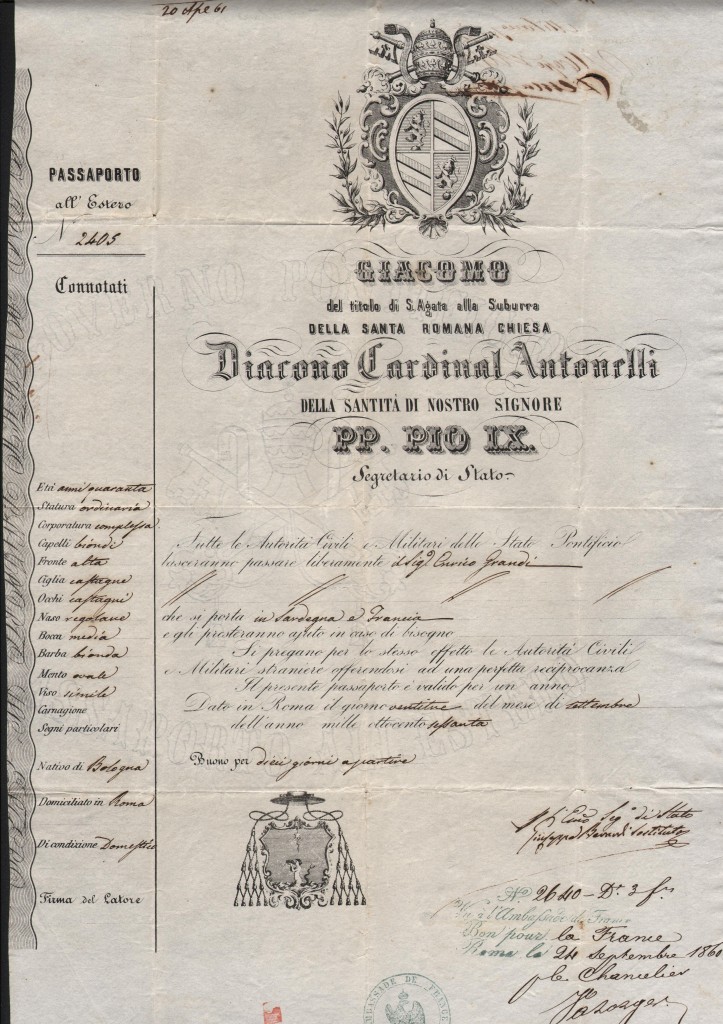 20 Apr 61
PASSAPORTO
all' Estero
N° 2405
Connotati
Età anni quaranta
Statura ordinaria
Corporatura complessa
Capelli biondi
Fronte alta
Ciglia castagne
Occhi castagni
Naso regolare
Bocca media
Barba bionda
Mento ovale
Viso simile
Carnagione
Segni particolari
Nativo di Bologna
Domiciliato in Roma
Di condizione Domestico
Firma del Latore
GIACOMO
del titolo di S. Agata alla Suburra
DELLA SANTA ROMANA CHIESA
Diacono Cardinal Antonelli
DELLA SANTITÀ DI NOSTRO SIGNORE
PP. PIO IX.
Segretario di Stato
Tutte le Autorità Civili e Militari dello Stato Pontificio
lasceranno passare liberamente il Sig. Enrico Grandi
che si porta in Sardegna e Francia
e gli presteranno ajuto in caso di bisogno
Si pregano per lo stesso effetto le Autorità Civili
e Militari straniere offerendosi ad una perfetta reciprocanza
Il presente passaporto è valido per un anno
Dato in Roma il giorno ventitre del mese di settembre
dell'anno mille ottocento sessanta
Buono per dieci giorni a partire
Segº di Stato
Giuseppe Berardi Sostituto
Nº 2640 - Dt. 3 fs
Vu à l'Ambassade de France
Bon pour la France
Rome le 24 Septembre 1860
p le Chancelier
AMBASSADE DE FRANCE